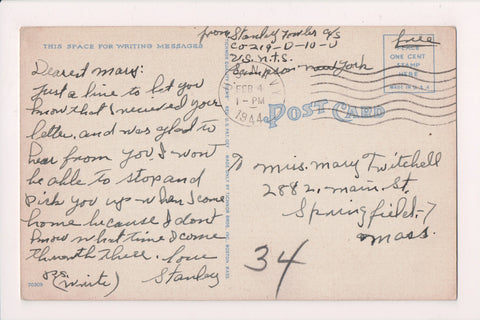 THIS SPACE FOR WRITING MESSAGES
Dearest Mary:
Just a line to let you
know that I recieved your
letter. and was glad to
hear from you. I won't
be able to stop and
pick you up when I come
home because I don't
know what time I come
through there. Love
P.S. Stanley
(Write)
70309
from Stanley Fowler A/S
CO-219-D-10-U
U.S.N.T.S.
Sampson New York
free
PLACE
ONE CENT
STAMP
HERE
MADE IN U.S.A.
N.Y.
FEB 4
1-PM
1944
POST CARD
To Miss. Mary Twitchell
2882. main St.
Springfield. 7
Mass.
34